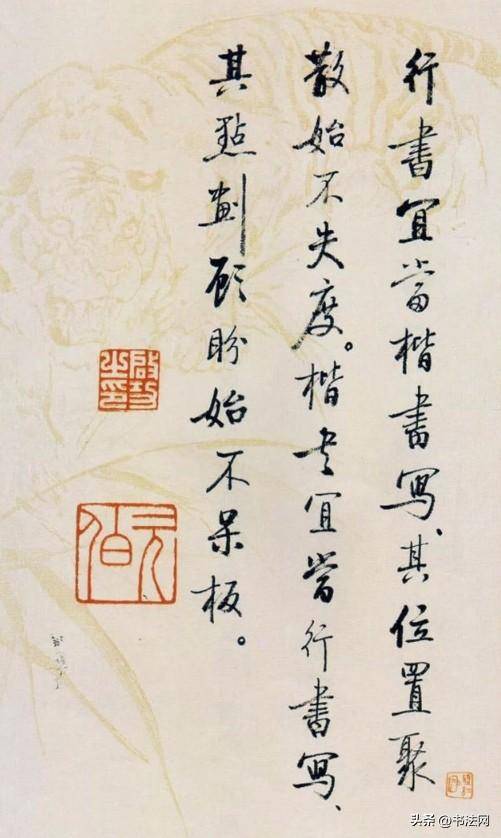 行書宜當楷書寫、其位置聚
散始不失度。楷书宜當行書寫、
其點劃顧盼始不呆板。
啟功之印
元白
头条 @书法网